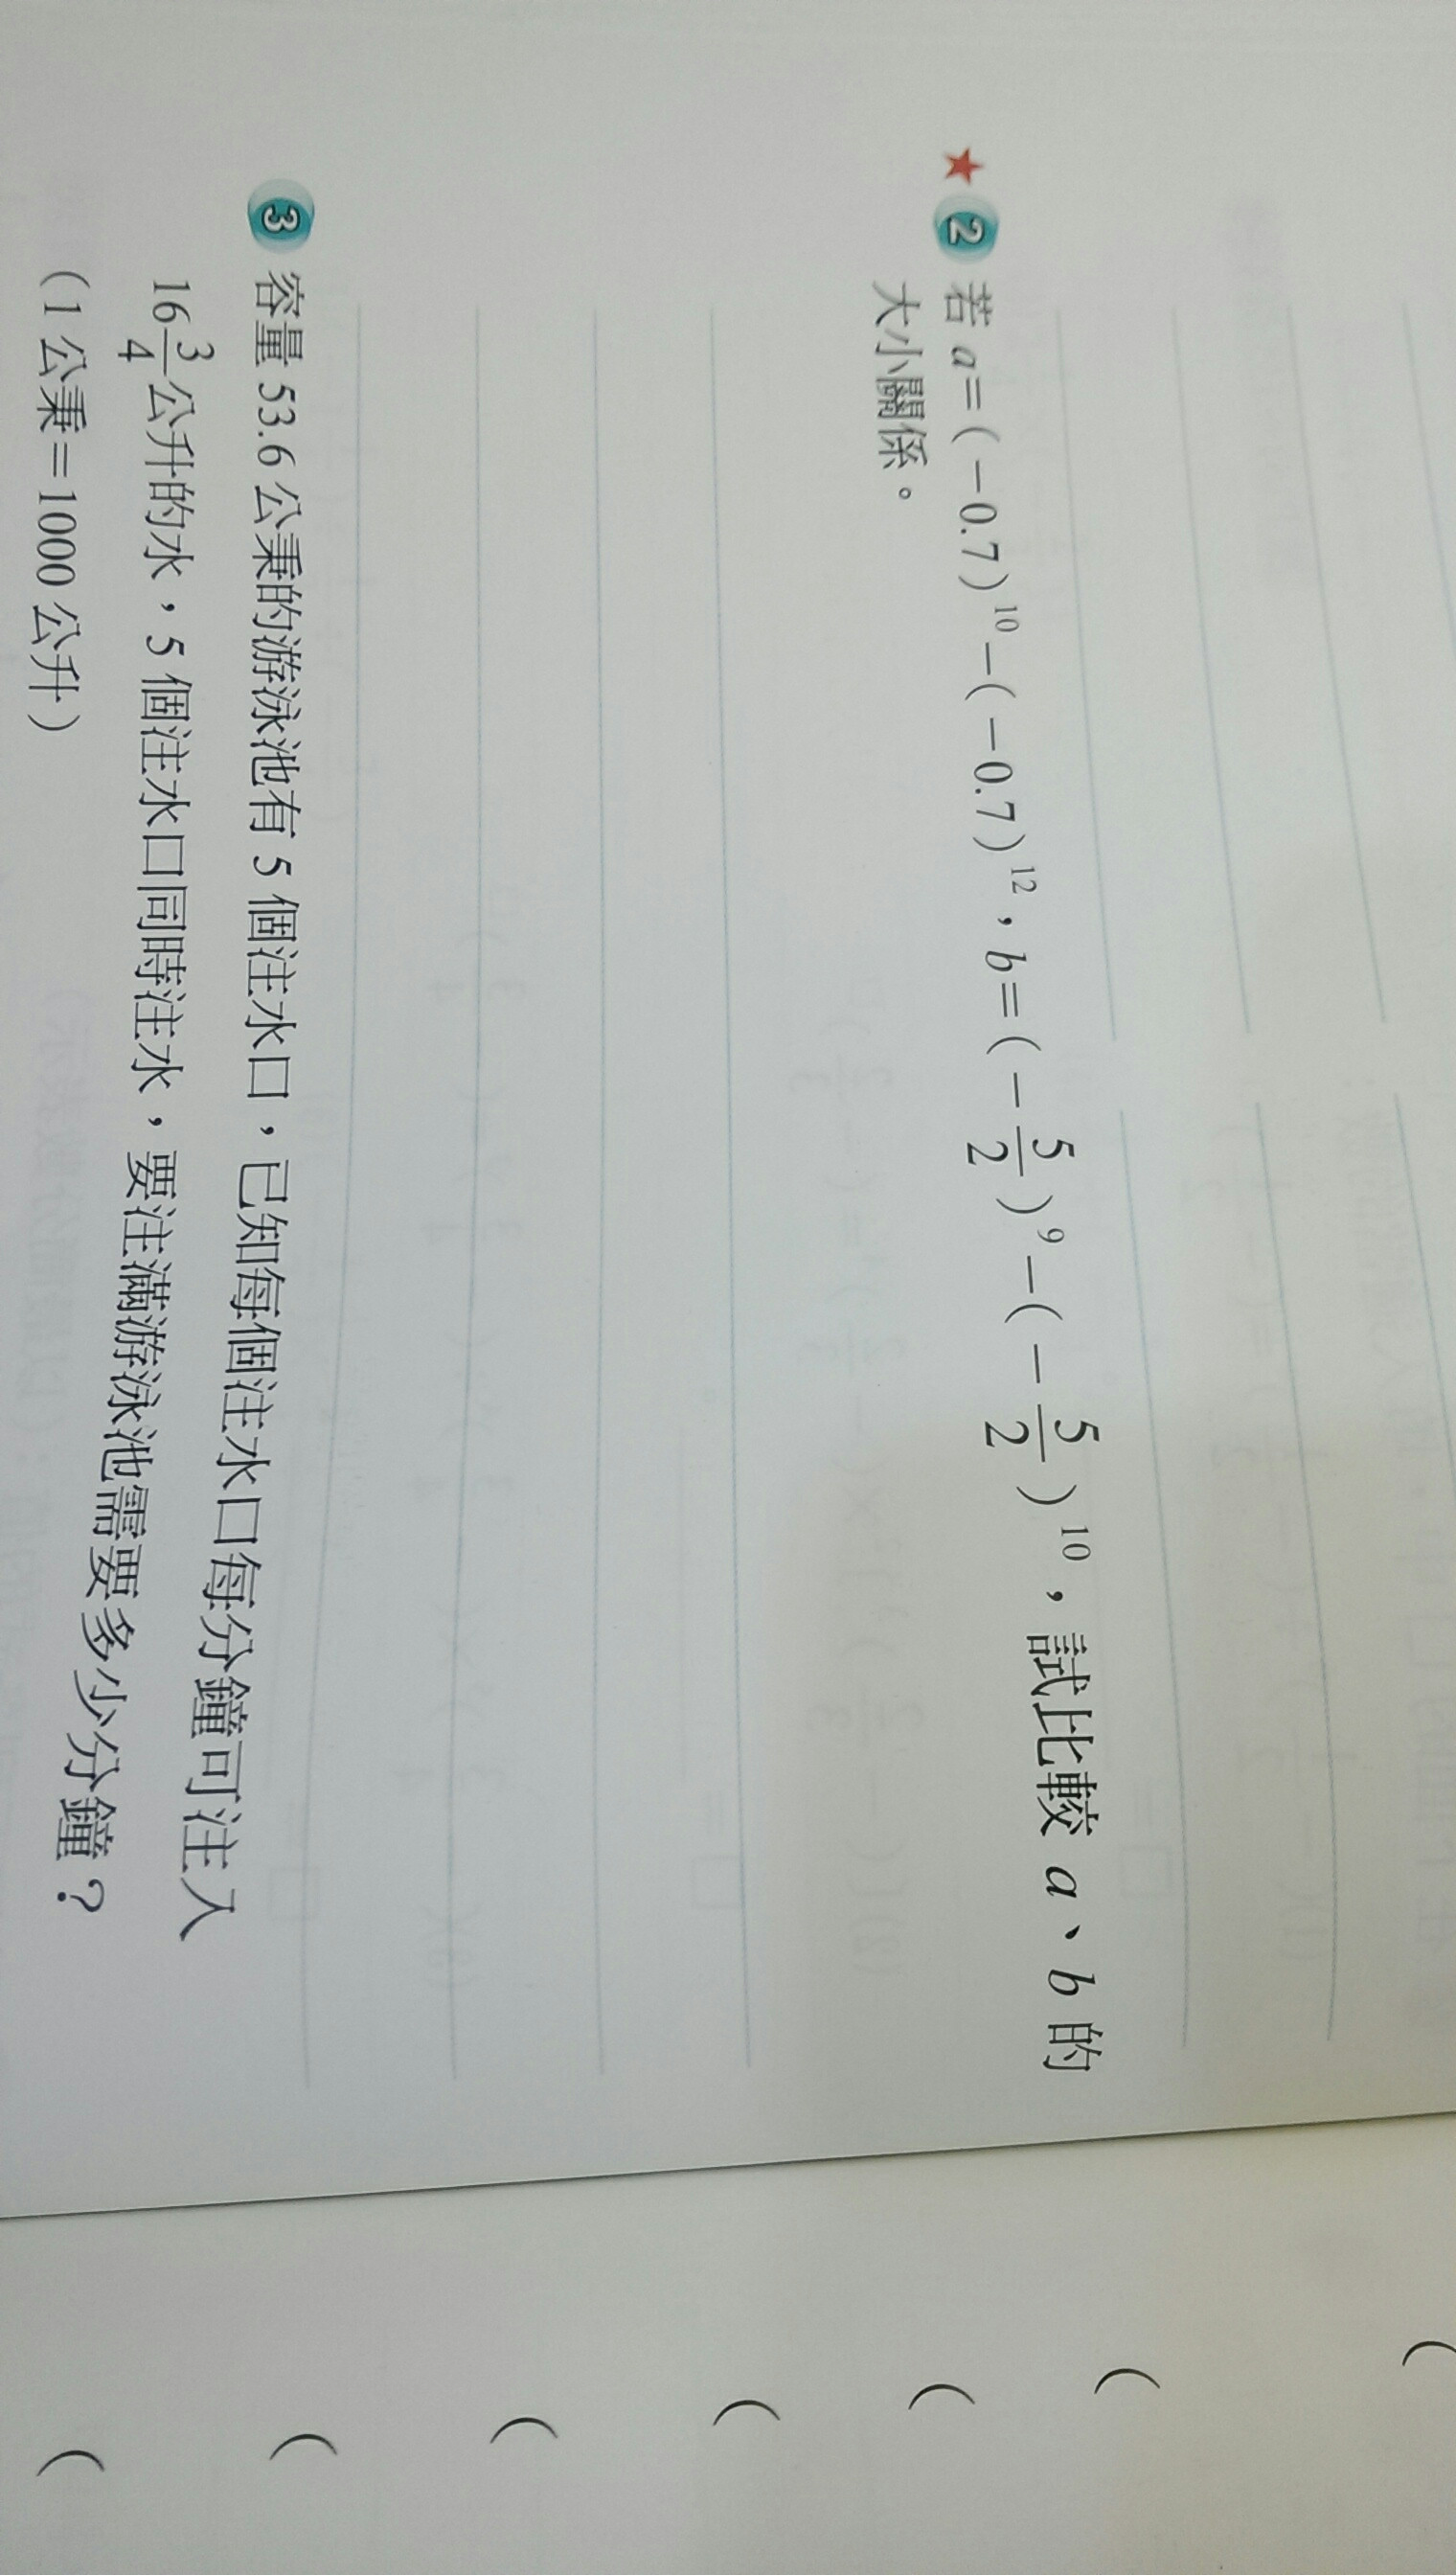 ★ 2 若 a=(-0.7)¹⁰-(-0.7)¹²，b=(-5/2)⁹-(-5/2)¹⁰，試比較 a、b 的
大小關係。
3 容量 53.6 公秉的游泳池有 5 個注水口，已知每個注水口每分鐘可注入
16 3/4 公升的水，5 個注水口同時注水，要注滿游泳池需要多少分鐘？
(1 公秉=1000 公升)
(
(
(
(
(
(
(